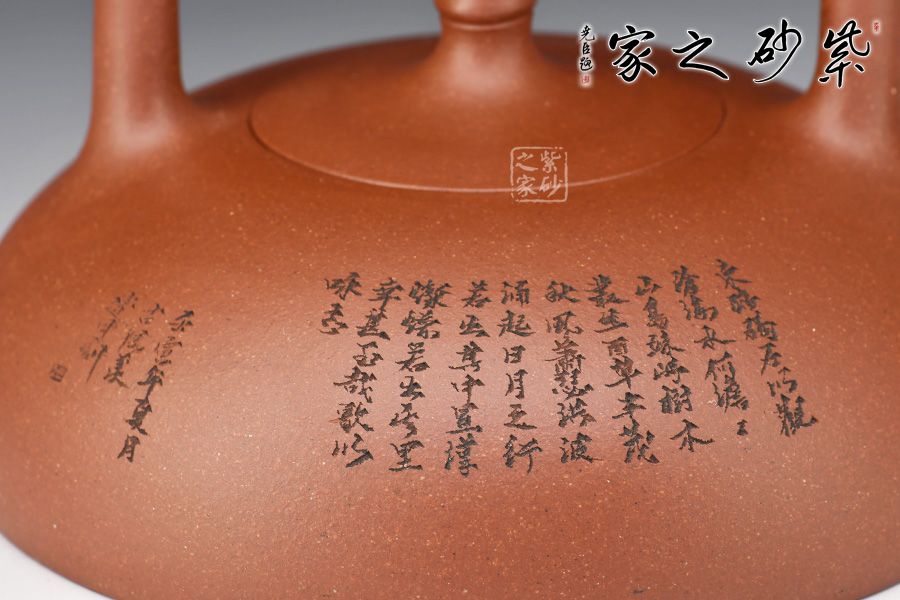 紫砂之家
堯臣題
紫砂
之家
東臨碣石以觀
滄海水何澹〻
山島竦峙樹木
叢生百草丰茂
秋風蕭瑟洪波
涌起日月之行
若出其中星漢
燦爛若出其里
幸甚至哉歌以
咏志
年夏月